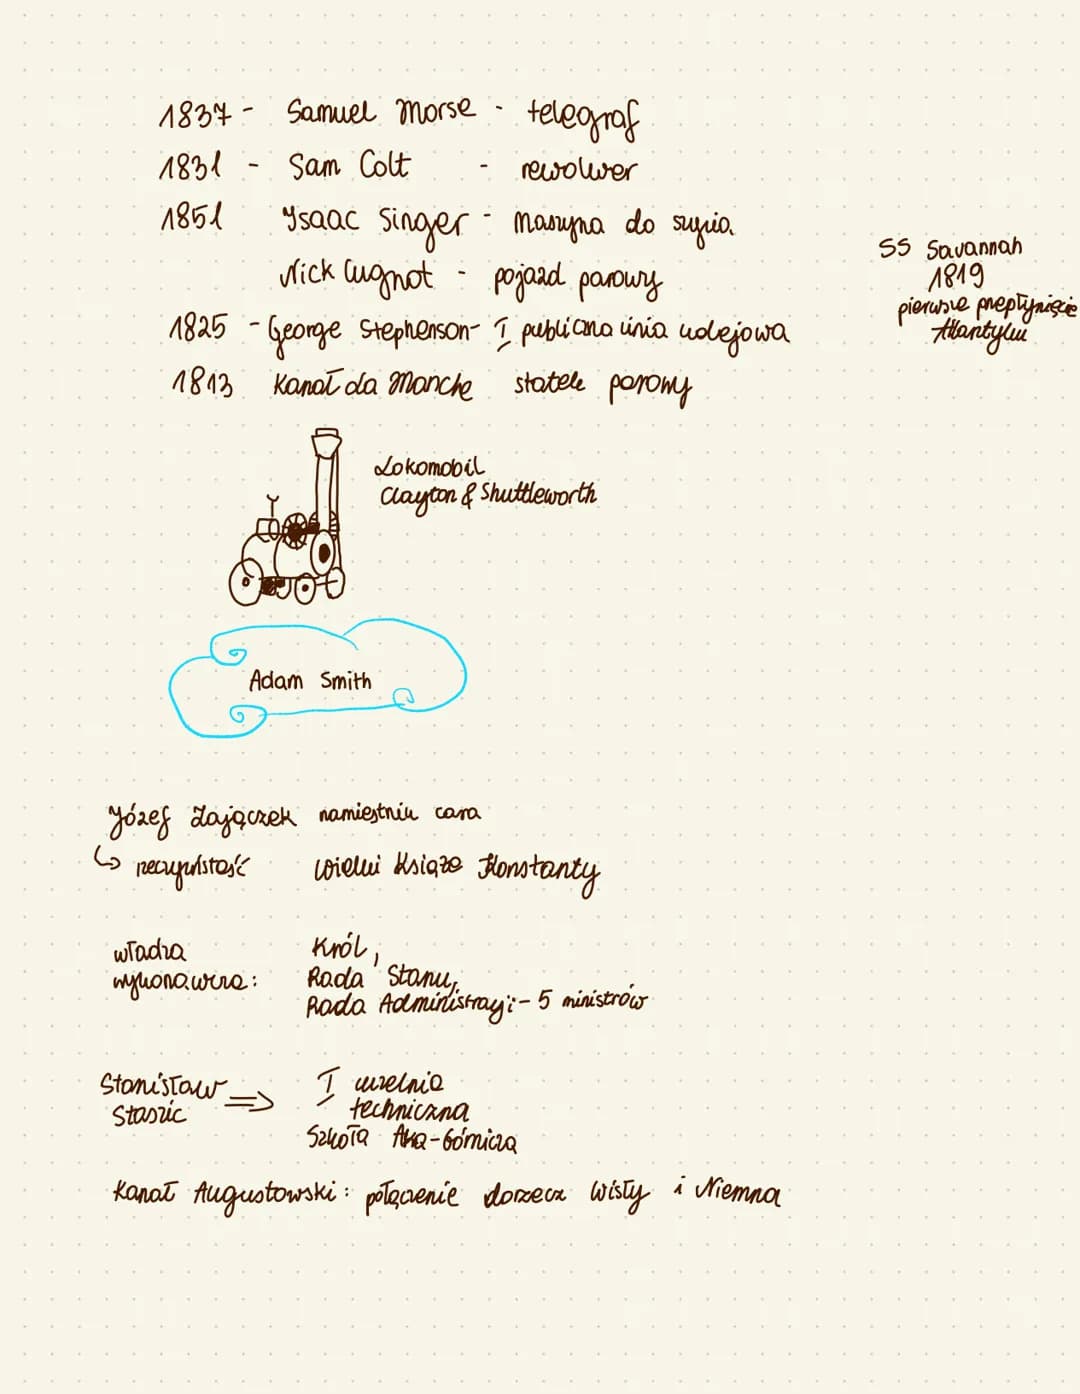 1837 - Samuel Morse - telegraf
1831 - Sam Colt - rewolwer
1851 Isaac Singer - maszyna do szycia
Nick Cugnot - pojazd parowy
1825 - George Stephenson - I publiczna linia kolejowa
1813 Kanał la Manche statek parowy
SS Savannah
1819
pierwsze przepłynięcie
Atlantyku
Lokomobil
Clayton & Shuttleworth
Adam Smith
Józef Zajączek namiestnik cara
↳ rzeczywistość Wielki Książe Konstanty
władza Król,
wykonawcza: Rada Stanu,
Rada Administracyji - 5 ministrów
Stanisław ⇒ I uczelnia
Staszic techniczna
Szkoła Aka-Górnicza
Kanał Augustowski: połączenie dorzecz Wisły i Niemna